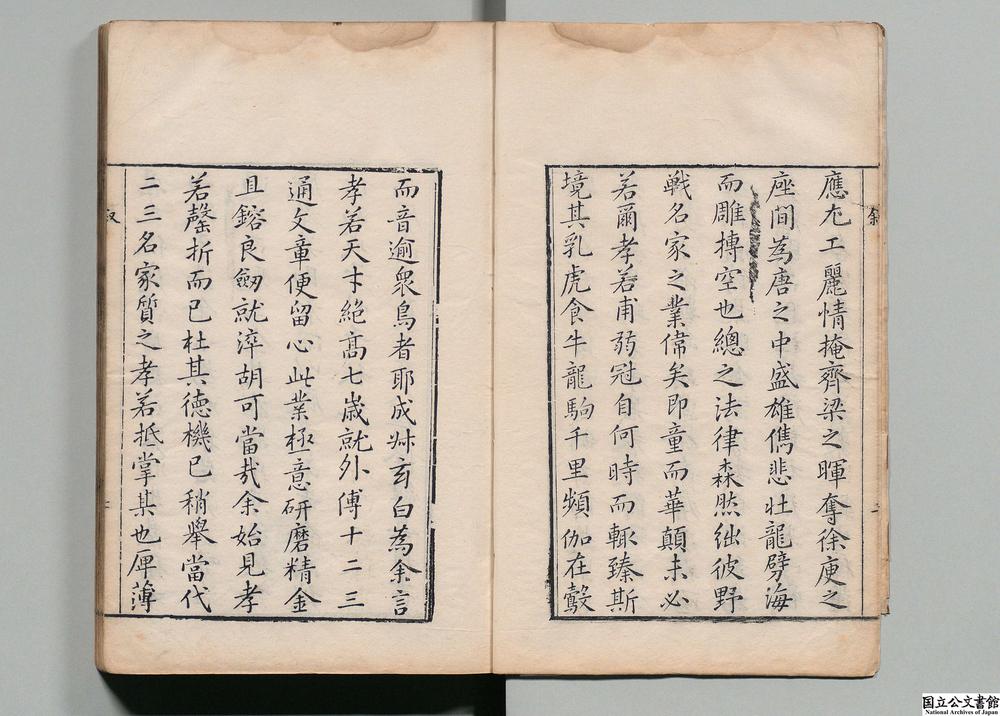 應尤工麗情掩齊梁之暉奪徐庾之
座間為唐之中盛雄儁悲壯龍劈海
而雕摶空也總之法律森然絀彼野
戰名家之業偉矣即童而華顛未必
若爾孝若甫弱冠自何時而輒臻斯
境其乳虎食牛龍駒千里頻伽在鷇
而音逾衆鳥者耶成艸玄白為余言
孝若天才絕高七歲就外傅十二三
通文章便留心此業極意研磨精金
且鎔良劒就淬胡可當哉余始見孝
若罄折而已杜其德機已稍舉當代
二三名家質之孝若抵掌其也厔薄
国立公文書館
National Archives of Japan